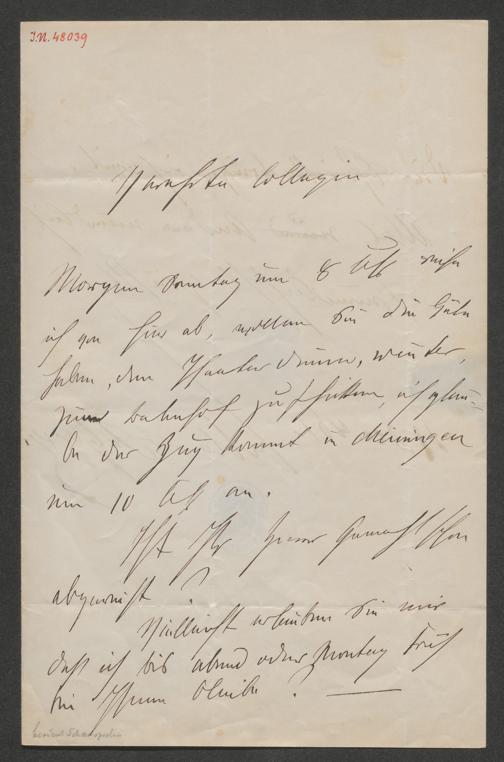 I.N. 48039
Verehrte Collegin
Morgen Sonntag um 8 Uhr reise
ich von hier ab, wollen Sie die Güte
haben, den Theater diener, Winter,
zum Bahnhof zu schicken, ich glau-
be der Zug kommt in Meiningen
um 10 Uhr an.
Ist Ihr Herr Gemahl schon
abgereist ?
Vielleicht erlauben Sie mir
daß ich bis Abend oder Montag Früh
bei Ihnen bleibe ?